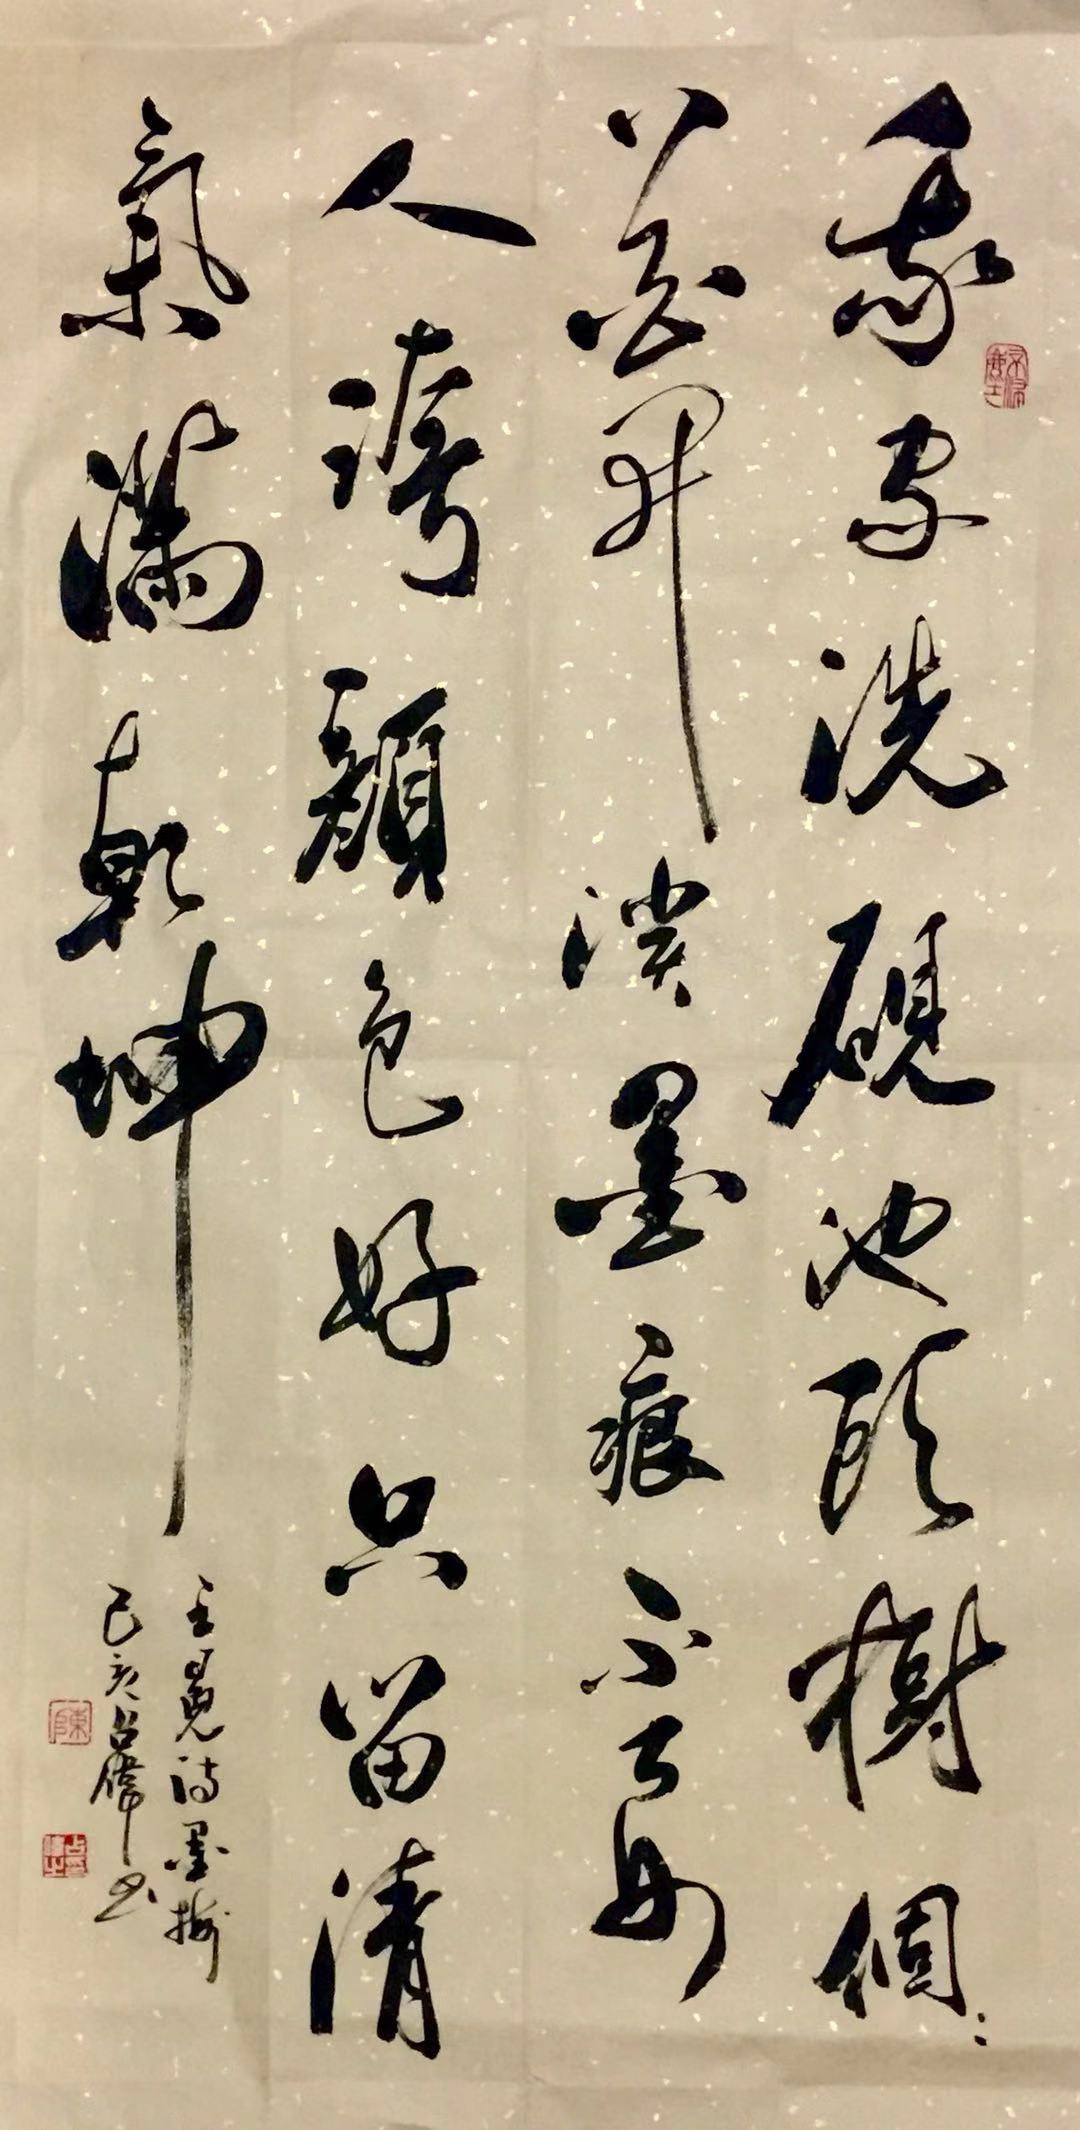 我家洗硯池頭樹個〻
花開淡墨痕不要
人誇顏色好只留清
氣滿乾坤
王冕詩墨梅
己亥占雄书
陳